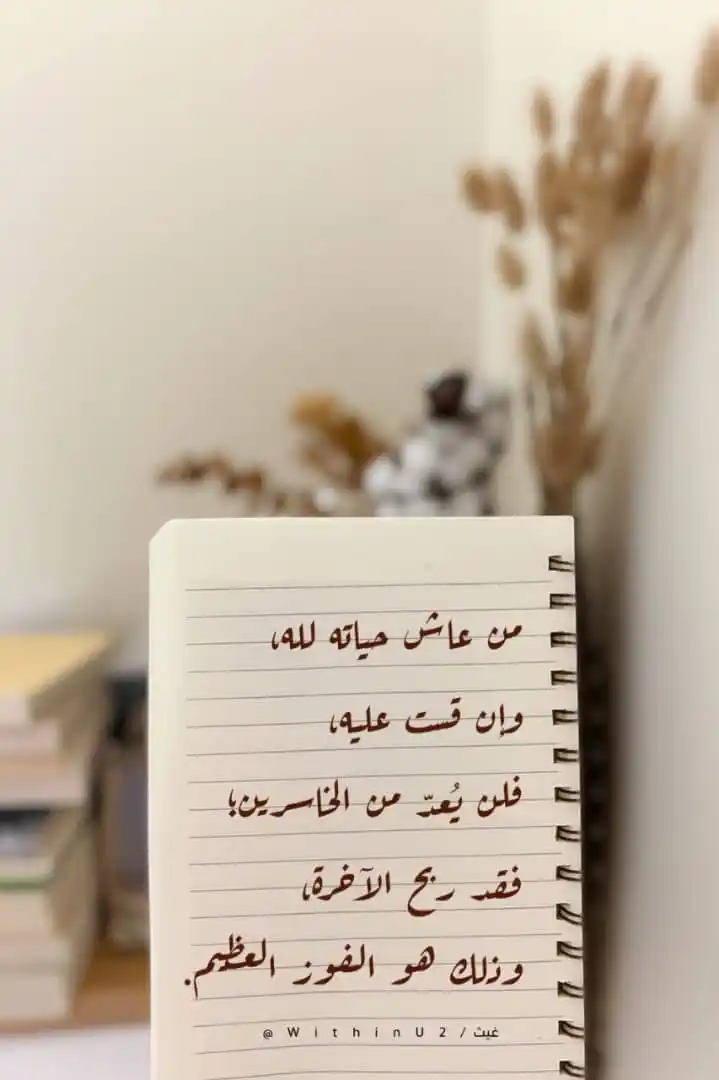 من عاش حياته لله،
وإن قست عليه،
فلن يُعدّ من الخاسرين؛
فقد ربح الآخرة،
وذلك هو الفوز العظيم.
@WithinU2/غيث